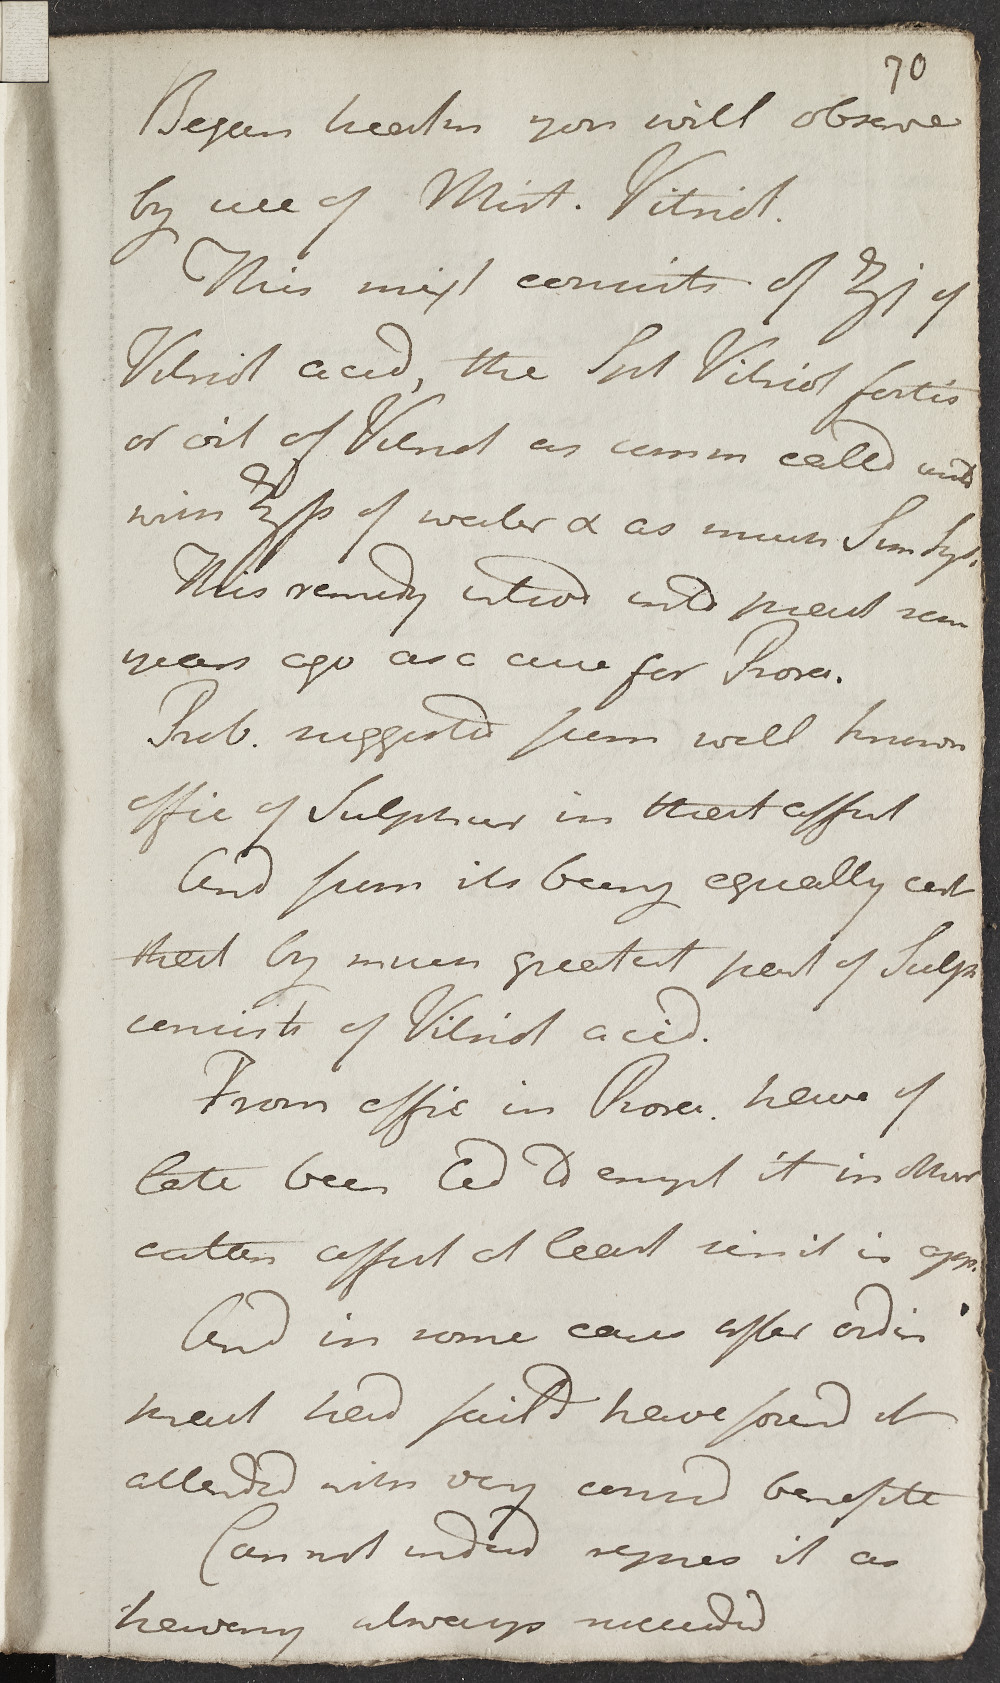 70
Began heal in you will observe
by use of Mist. Vitriol.
This mixt consists of ʒj of
Vitriol acid, the Spt Vitriol fortis
or oil of Vitriol as comm called
with ℥ss of water & as much Sim Syr.
This remedy introd into pract som
years ago as a cure for Psora.
Prob. suggested from well known
effic of Sulphur in that affect
And from its being equally cert
that by much greatest part of Sulph
consists of Vitriol acid.
From effic in Psora. have of
late been led to empl it in other
cutan affect at least sinc it is app.
And in some cases after ordin
treat had fail'd have found it
attended with very consid benefite
Can not indeed repres it as
having always succeeded